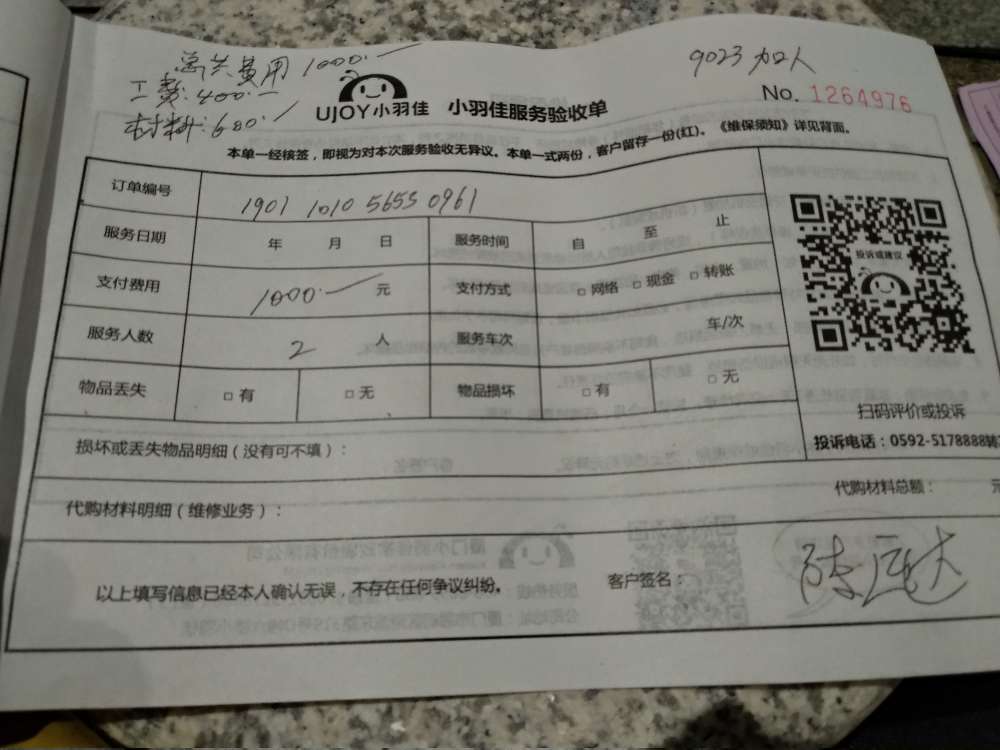 总共费用 1000.一
工费:400.一
材料:600.一
9023 加人
UJOY小羽佳 小羽佳服务验收单
No. 1264976
本单一经核签，即视为对本次服务验收无异议。本单一式两份，客户留存一份(红)。《维保须知》详见背面。
订单编号 1901 1010 5655 0961
服务日期 年 月 日 服务时间 自 至 止
支付费用 1000.一 元 支付方式 □网络 □现金 □转账
服务人数 2 人 服务车次 车/次
物品丢失 □有 □无 物品损坏 □有 □无
投诉或建议
扫码评价或投诉
投诉电话：0592-5178888转
损坏或丢失物品明细（没有可不填）：
代购材料明细（维修业务）：
代购材料总额： 元
以上填写信息已经本人确认无误，不存在任何争议纠纷。
客户签名：